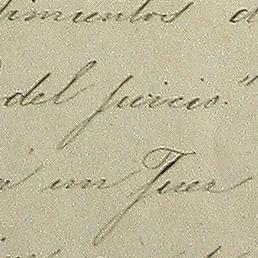 imientos d
del juicio."
un Juez